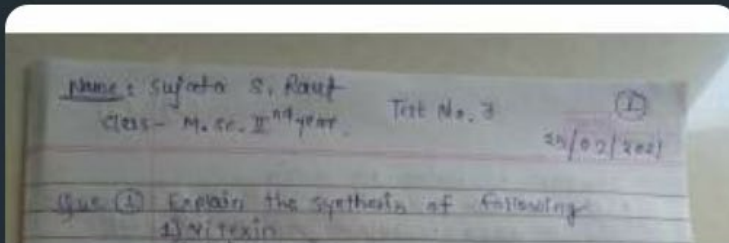 Name: Sujata S. Raut
Class- M.sc. IInd year.
Test No. 3
①
25/02/2021
Que ① Explain the synthesis of following
1) Vitexin